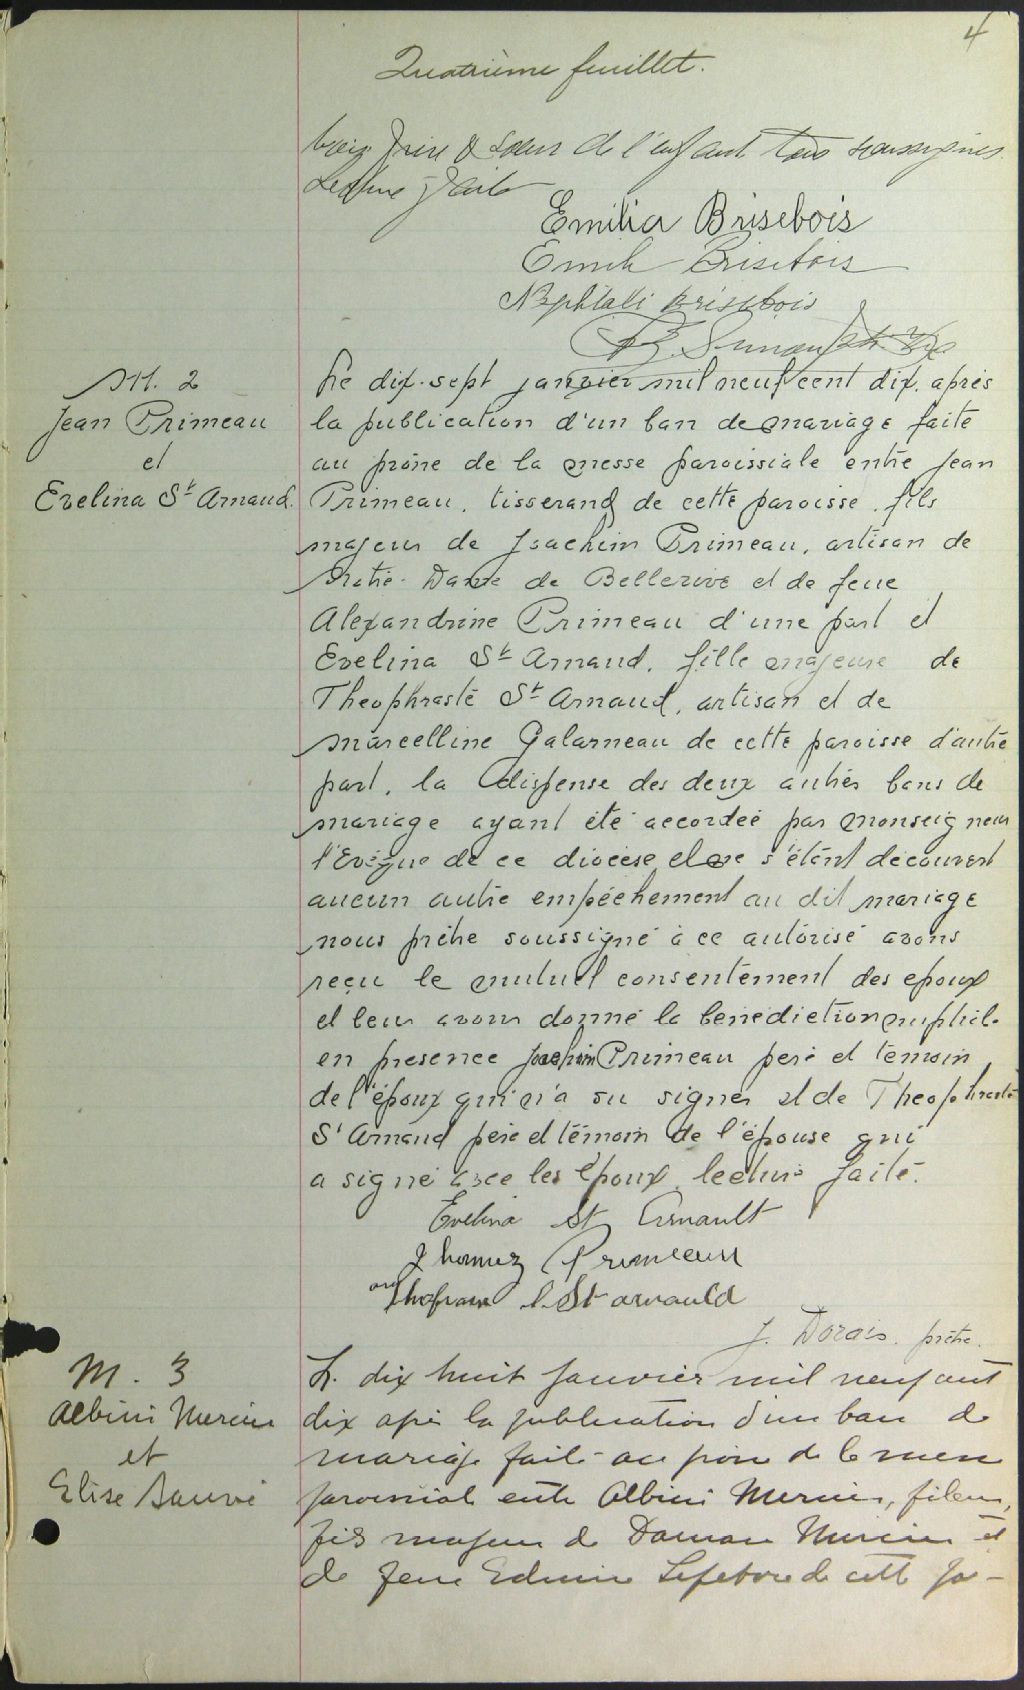 4
Quatrième feuillet.
frère & soeur de l'enfant tous soussignés.
Lecture faite
Emilia Brisebois
Emile Brisebois
Nephtali Brisebois
M. 2
Jean Primeau
et
Evelina St Arnaud.
Le dix-sept janvier mil neuf cent dix. après
la publication d'un ban de mariage faite
au prône de la messe paroissiale entre Jean
Primeau, tisserand de cette paroisse, fils
majeur de Joachim Primeau, artisan de
Notre-Dame de Bellerive et de feue
Alexandrine Primeau d'une part et
Evelina St Arnaud, fille majeure de
Theophraste St Arnaud, artisan et de
Marcelline Galarneau de cette paroisse d'autre
part, la dispense des deux autres bans de
mariage ayant été accordée par Monseigneur
l'Evêque de ce diocèse et ne s'étant découvert
aucun autre empêchement au dit mariage
nous prêtre soussigné à ce autorisé avons
reçu le mutuel consentement des epoux
et leur avons donné la bénédiction nuptiale
en presence Joachim Primeau père et témoin
de l'époux qui n'a su signer et de Theophraste
St Arnaud père et témoin de l'épouse qui
a signé avec les époux, lecture faite.
Evelina St Arnault
Primeau
St arnauld
J. Dorais. prêtre.
M. 3
Albini Mercier
et
Elise Sauvé
Le dix huit janvier mil neuf cent
dix après la publication d'un ban de
mariage faite au prône de la messe
paroissiale entre Albini Mercier, fileur,
fils majeur de Damase Mercier et
de feue Edwine Lefebvre de cette pa-